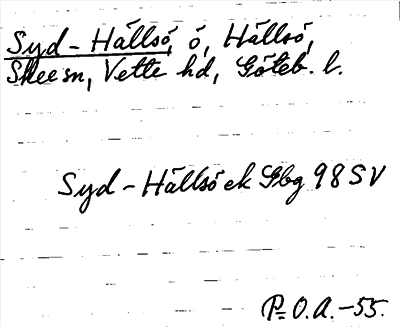 Syd-Hällsö, ö, Hällsö,
Skee sn, Vette hd, Göteb. l.
Syd-Hällsö ek Gbg 98 SV
P.O.A.-55.